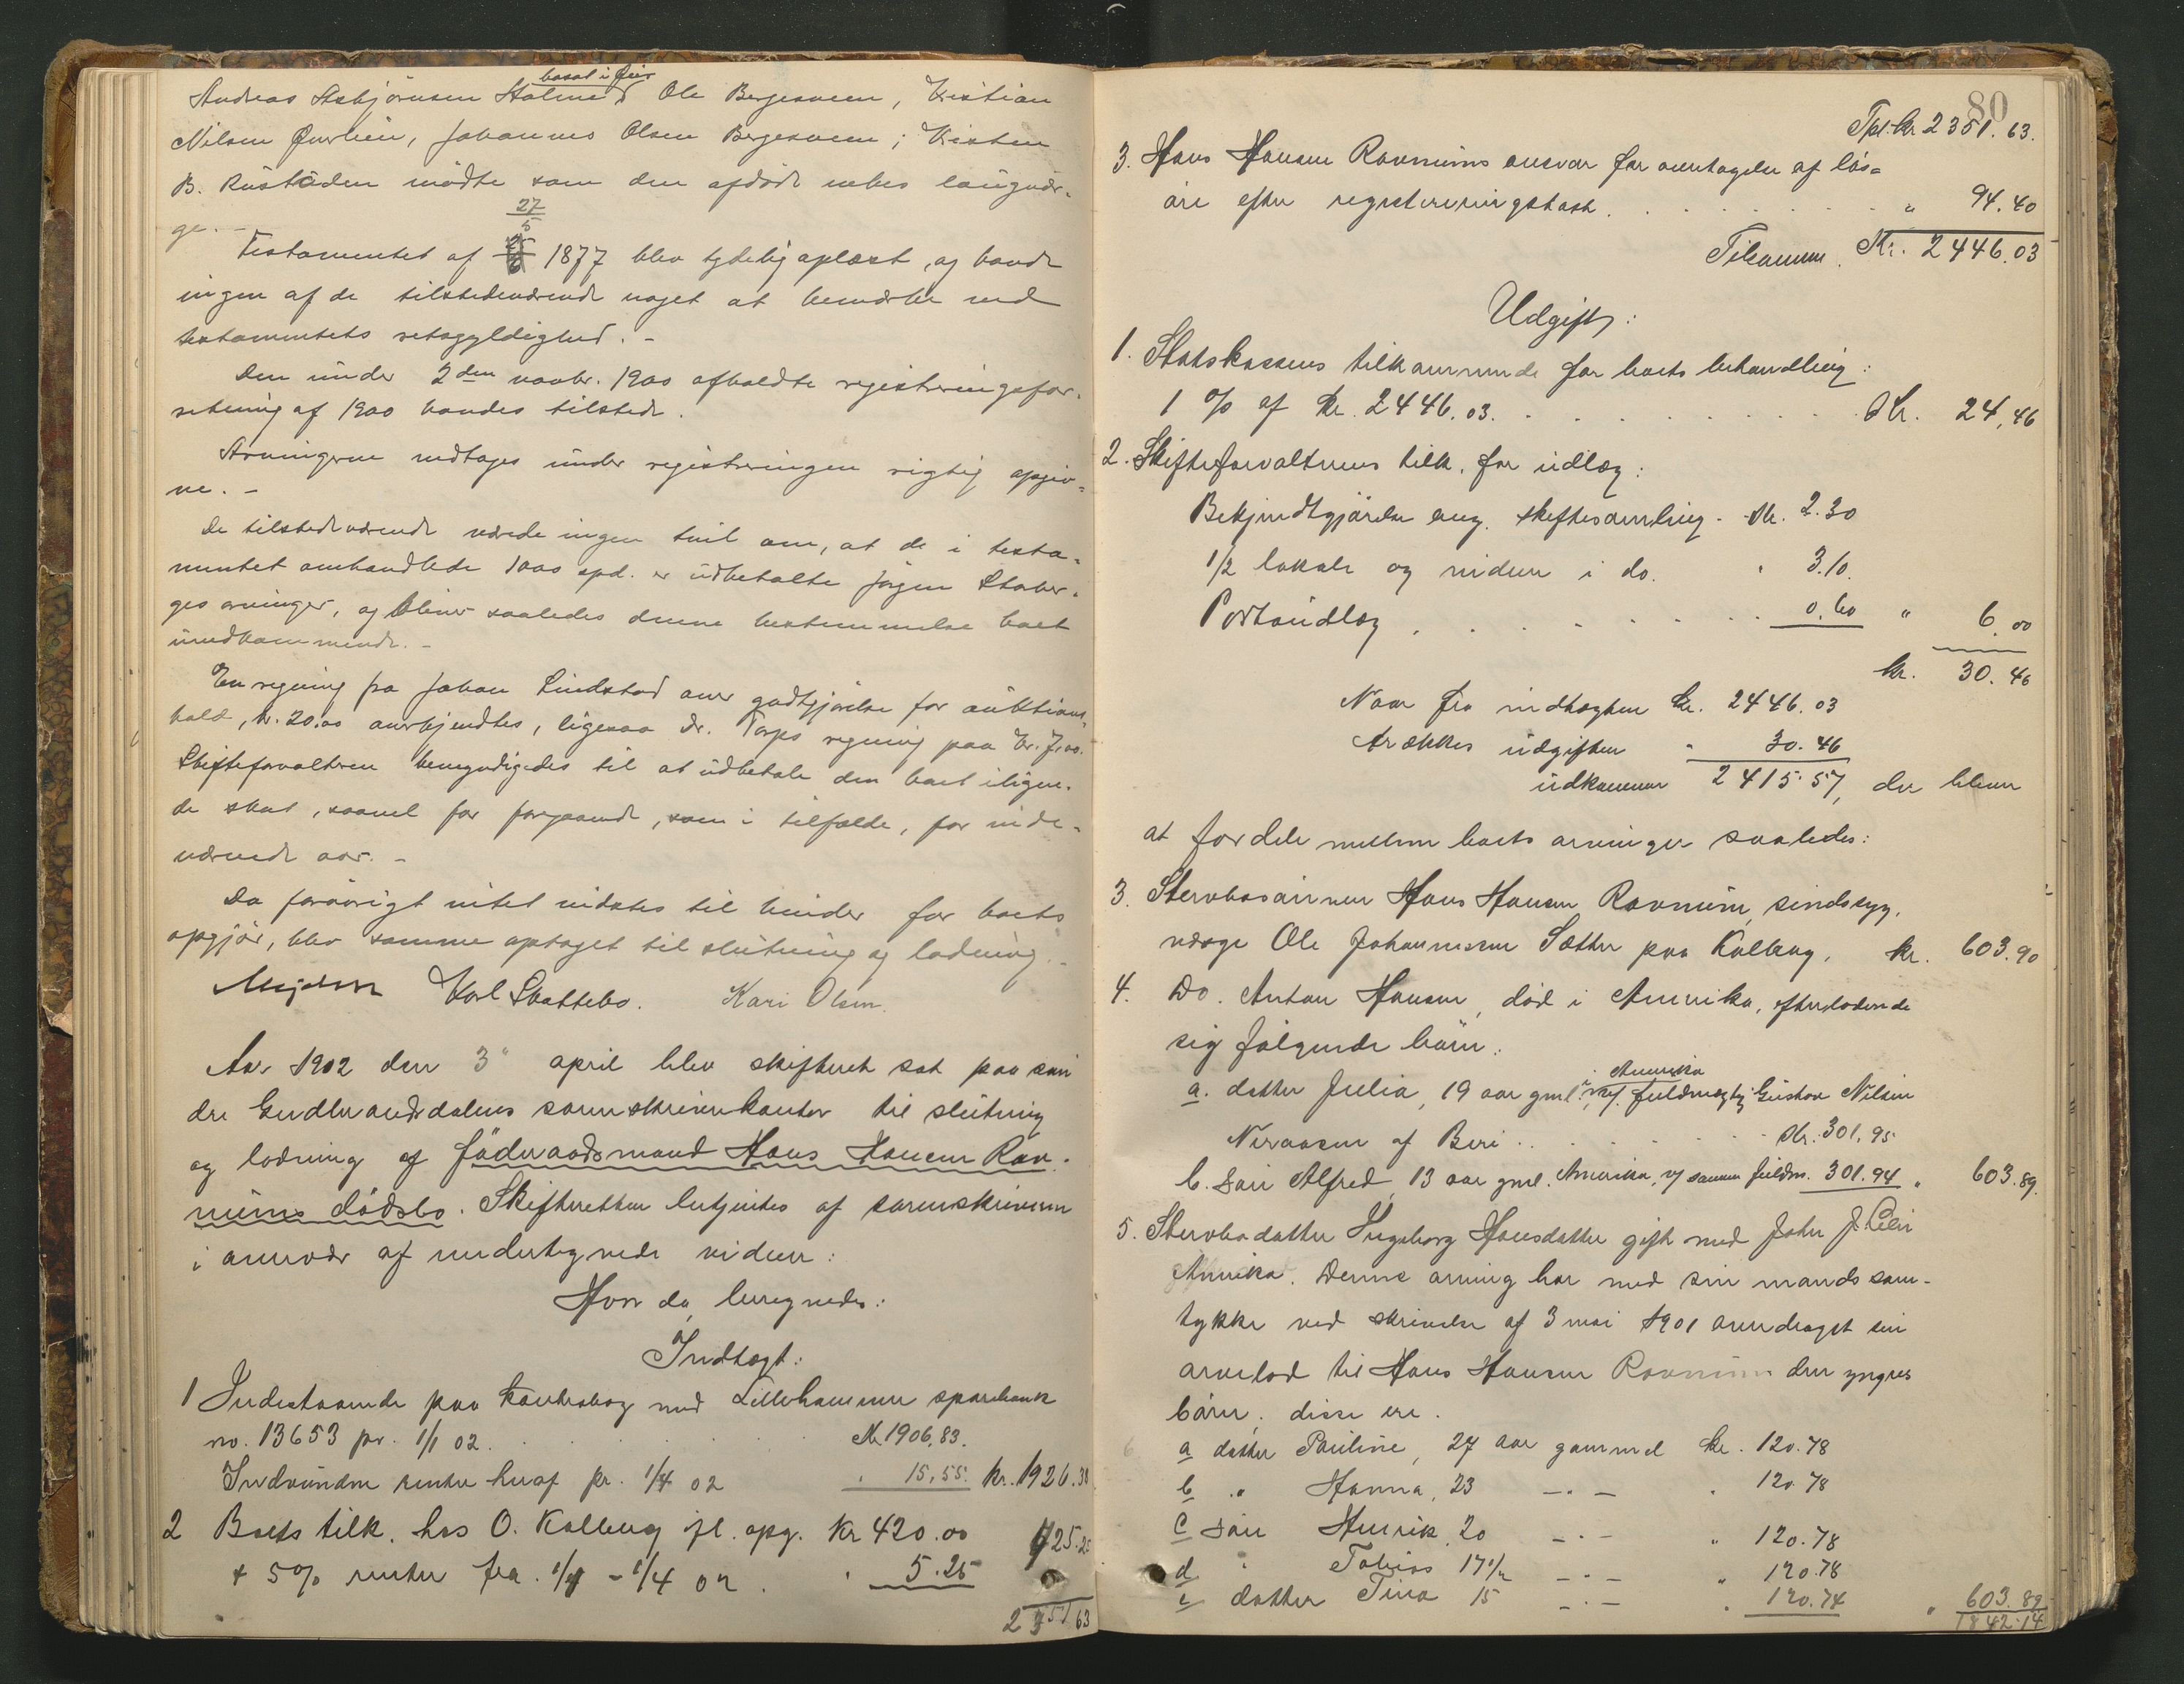 bosat i Øier
Andreas Asbjørnsen Holmen, Ole Bergesveen, Kristian
Nilsen Ourlien, Johannes Olsen Bergesveen; Kristen
B. Rustaden mødte som den afdøde enkes laugvær-
ge. -
27
5
Testamentet af 1877 blev tydelig oplæst, og havde
ingen af de tilstedeværende noget at bemærke ved
testamentets retsgyldighed. -
Den under 2den novbr. 1900 afholdte registreringsfor-
retning af 1900 havdes tilstede.
Arvingerne vedtoges under registreringen rigtig opgiv-
ne. -
De tilstedeværende nærede ingen tvil om, at de i testa-
mentet omhandlede 1000 spd. er udbetalte Jørgen Staber-
ges arvinger, og bliver saaledes denne bestemmelse boet
uvedkommende. -
En regning fra Johan Lindstad over godtgjørelse for auktions-
hold, kr. 20.00 anerkjendtes, ligesaa dr. Torps regning paa kr. 7,00.
Skifteforvalteren bemyndigedes til at udbetale den boet iligne-
de skat, saavel for foregaaende, som i tilfælde, for inde-
værende aar. -
Da forøvrigt intet vidstes til hinder for boets
opgjør, blev samme optaget til slutning og lodning. -
Mejdell Karl Skattebo. Kari Olsen.
Aar 1902 den 3" april blev skifteret sat paa søn
dre Gudbrandsdalens sorenskriverkontor til slutning
og lodning af föderaadsmand Hans Hansen Rav-
nums dödsbo. Skifteretten betjentes af sorenskriveren
i overvær af undertegnede vidner:
Hvor da beregnedes:
Indtægt:
1 Indestaaende paa kontrabog med Lillehammer sparebank
no. 13653 pr. 1/1 02. Kr. 1906,83.
Indvundne renter heraf pr. 1/4 02 " 15,55. kr. 1926.38
2 Boets tilk. hos O. Kalberg ifl. opg. Kr 420.00
+ 5% renter fra 1/1 - 1/4 02. " 5.25 425.25
2351 63
80
Tpt. kr 2351.63.
3. Hans Hansen Ravnums ansvar for overtagelse af løs-
øre efter registreringstakst. " 94.40
Tilsammen Kr. 2446.03
Udgift:
1. Statskassens tilkommende for boets behandling:
1 % af kr. 2446.03. Kr. 24,46
2. Skifteforvalterens tilk. for udlæg:
Bekjendtgjørelse ang. skiftesamling - Kr. 2.30
1/2 lokale og vidner i do. " 3.10.
Portoudlæg. 0.60 " 6.00
kr. 30.46
Naar fra indtægten kr. 2446.03
trækkes udgiften " 30.46
udkommer 2415.57, der bliver
at fordele mellem boets arvinger saaledes:
3. Stervbosønnen Hans Hansen Ravnum, sindssyg,
værge Ole Johannessen Sæther paa Kalberg, kr. 603.90
4. Do. Anton Hansen, död i Amerika, efterladende
sig følgende börn:
i Amerika
a. datter Julia, 19 aar gml. v/ fuldmægtig Gustav Nilsen
Neraasen af Biri. . Kr. 301,95
b. Søn Alfred, 13 aar gml. Amerika, v/ samme fuldm. 301.94 " 603.89.
5. Stervbodatter Ingeborg Hansdatter gift med John J. Lien
Amerika. Denne arving har med sin mands sam-
tykke ved skrivelse af 3 mai 1901 overdraget sin
arvelod til Hans Hansen Ravnum den yngres
børn. disse ere.
a datter Pauline, 27 aar gammel kr. 120.78
b " Hanna, 23 - " - " 120.78
c søn Henrik, 20 - " - " 120.78
d " Tobias 17 1/2 - " - " 120.78
e datter Tina 15 - " - " 120.74 " 603.89
1842.14